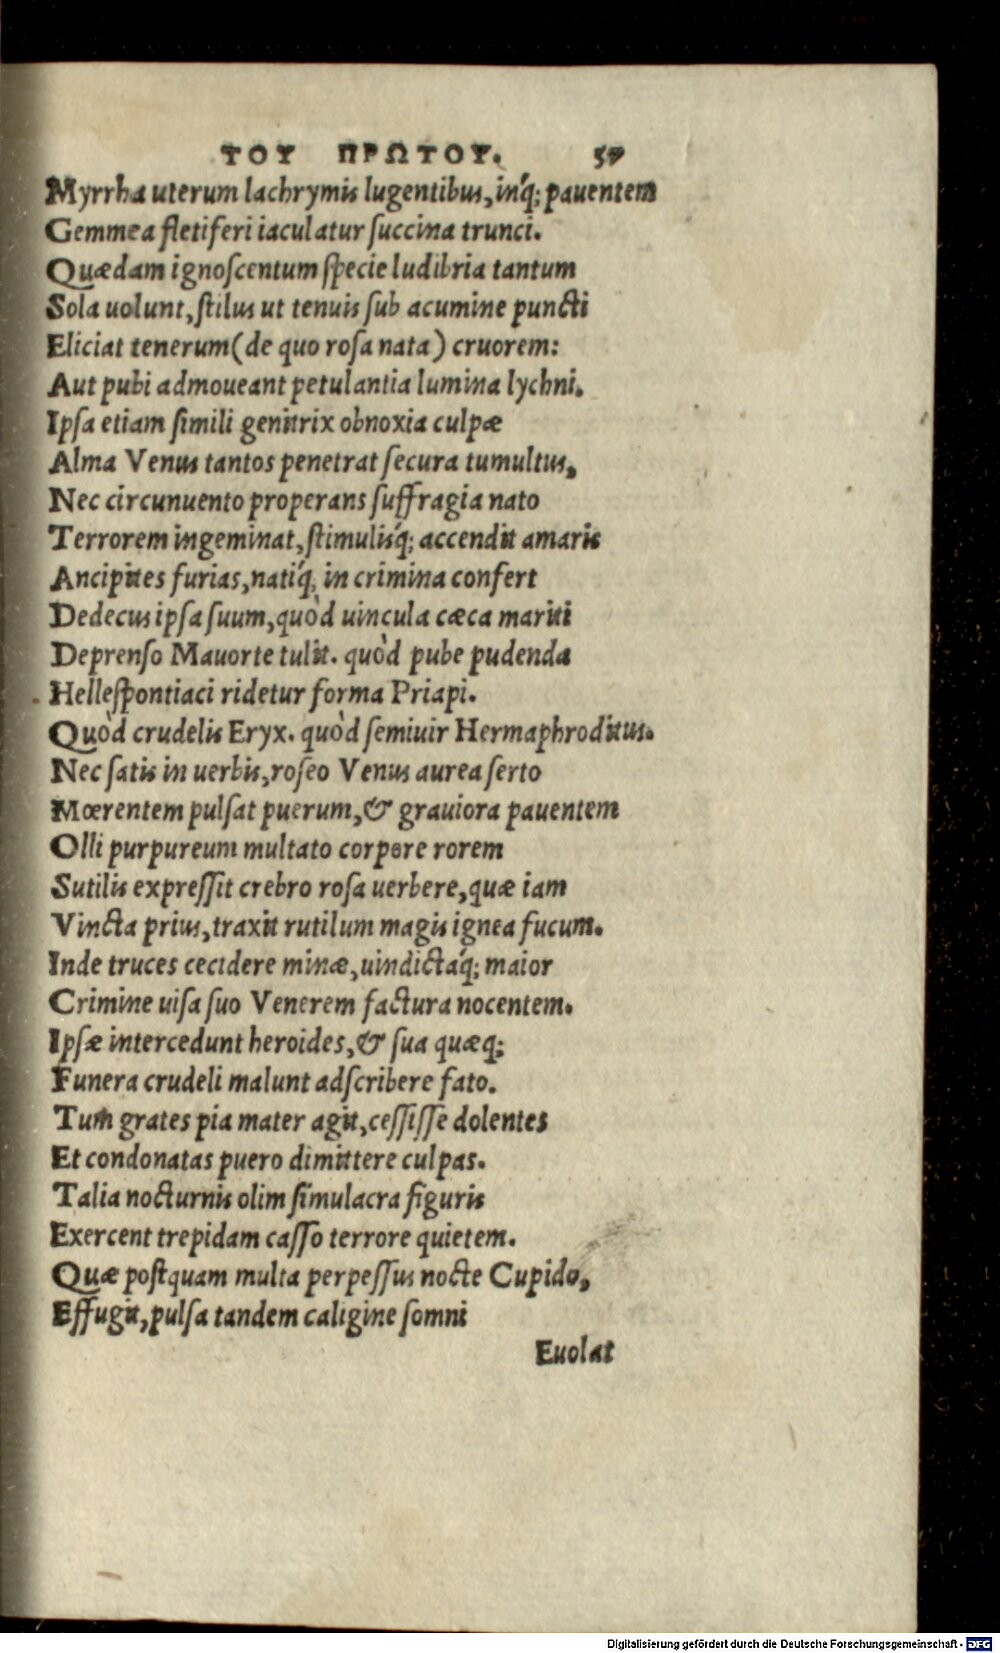 ΤΟΥ ΠΡΩΤΟΥ. 57
Myrrha uterum lachrymis lugentibus, inq́; pauentem
Gemmea fletiferi iaculatur ſuccina trunci.
Quædam ignoſcentum ſpecie ludibria tantum
Sola uolunt, ſtilus ut tenuis ſub acumine puncti
Eliciat tenerum (de quo roſa nata) cruorem:
Aut pubi admoueant petulantia lumina lychni.
Ipſa etiam ſimili genitrix obnoxia culpæ
Alma Venus tantos penetrat ſecura tumultus,
Nec circunuento properans ſuffragia nato
Terrorem ingeminat, ſtimulisq́; accendit amaris
Ancipites furias, natiq́; in crimina confert
Dedecus ipſa ſuum, quòd uincula cæca mariti
Deprenſo Mauorte tulit. quòd pube pudenda
Helleſpontiaci ridetur forma Priapi.
Quòd crudelis Eryx. quòd ſemiuir Hermaphroditus.
Nec ſatis in uerbis, roſeo Venus aurea ſerto
Mœrentem pulſat puerum, & grauiora pauentem
Olli purpureum multato corpore rorem
Sutilis expreſſit crebro roſa uerbere, quæ iam
Vincta prius, traxit rutilum magis ignea fucum.
Inde truces cecidere minæ, uindictaq́; maior
Crimine uiſa ſuo Venerem factura nocentem.
Ipſæ intercedunt heroides, & ſua quæq;
Funera crudeli malunt adſcribere fato.
Tum grates pia mater agit, ceſſiſſe dolentes
Et condonatas puero dimittere culpas.
Talia nocturnis olim ſimulacra figuris
Exercent trepidam caſſo terrore quietem.
Quæ poſtquam multa perpeſſus nocte Cupido,
Effugit, pulſa tandem caligine ſomni
Euolat
Digitalisierung gefördert durch die Deutsche Forschungsgemeinschaft - DFG